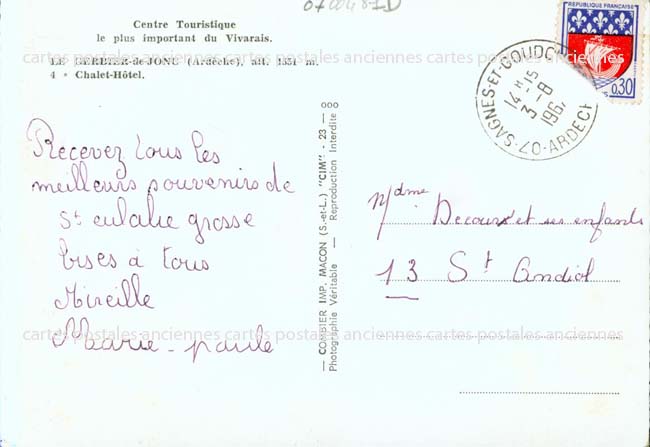 Centre Touristique
le plus important du Vivarais.
LE GERBIER-de-JONC (Ardèche), alt. 1551 m.
4 • Chalet-Hôtel.
Recevez tous les
meilleurs souvenirs de
St eulalie grosse
bises à tous
Mireille
Marie-paule
— COMBIER IMP. MACON (S.-et-L.) "CIM" - 23 — 000
Photographie Véritable — Reproduction Interdite
REPUBLIQUE FRANÇAISE
0,30
SAGNES-ET-GOUDO
14 H 15
3 - 8
196
07-ARDECH
Mdme Decoux et ses enfants
13 St Andiol
cartes postales anciennes cartes postales anciennes cartes postales anciennes
cartes postales anciennes cartes postales anciennes cartes postales anciennes